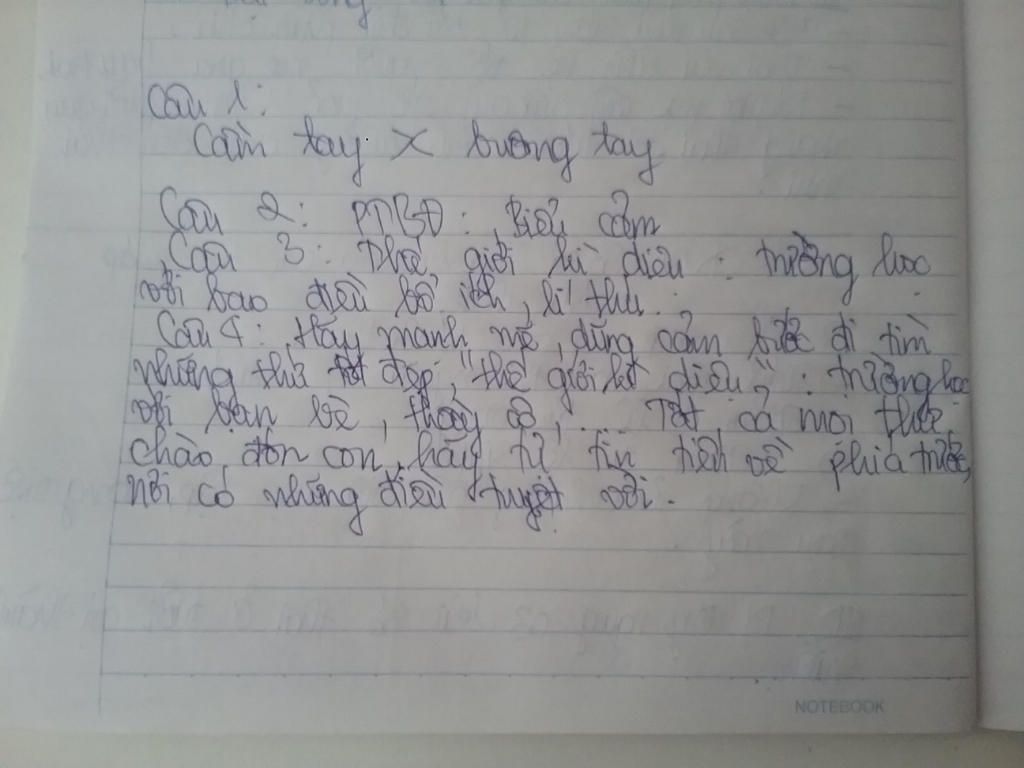 Câu 1:
Cầm tay X buông tay
Câu 2: PTBĐ: Biểu cảm
Câu 3: Thế giới kì diệu: trường học
với bao điều bổ ích, lí thú.
Câu 4: Hãy mạnh mẽ, dũng cảm bước đi tìm
những thứ tốt đẹp, "thế giới kì diệu": trường học
với bạn bè, thầy cô,... Tất cả mọi thứ
chào đón con, hãy tự tin tiến về phía trước,
nơi có những điều tuyệt vời.
NOTEBOOK